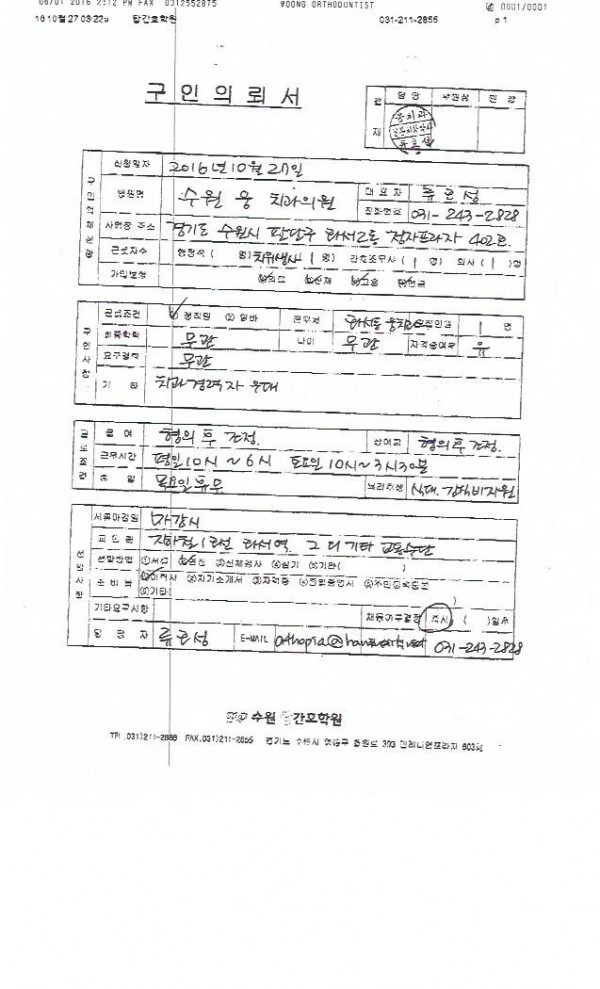 06/01 2016 2:12 PM FAX 0312552875 WOONG ORTHODONTIST 0001/0001
16 10월 27 03:22 탑간호학원 031-211-2855 p 1
구 인 의 뢰 서
결 재 담 당 부원장 원 장
신청일자 2016년 10월 27일
병원명 수원 웅 치과의원 대 표 자
전화번호 031-243-2828
사업장 주소 경기도 수원시 팔달구 화서2동 402호
근로자수 행정직 ( 명) 치위생사 1 명) 간호조무사 ( 1 명) 의사 ( 1 )명
가입보험 의료 산재 고용 연금
구 인 사 항
근로조건 정직원 (2) 알바 근무처 1 명
최종학력 무관 나이 무관 자격증여부 유
요구경력 무관
기 타 치과경력자 우대
근 로 조 건
급 여 협의 후 결정. 상여금 협의 후 결정.
근무시간 평일 10시 ~ 6시 토요일 10시 ~ 3시30분
휴 일 목요일 휴무 복리후생 식대.
서류마감일
교 통 편 지하철 1호선 화서역. 그 외 기타 교통수단
선발방법 (1)서류 면접 (3)신체검사 (4)실기 (5)기타( )
준 비 물 이력서 (2)자기소개서 (3)자격증 (4)졸업증명서 (5)주민등록등본
(6)기타( )
기타요구사항 채용여부결정 즉시 ( )일후
담 당 자 E-MAIL 031-243-2828
수원 간호학원
TEL.031)211-2868 FAX.031)211-2855 경기도 수원시 603호